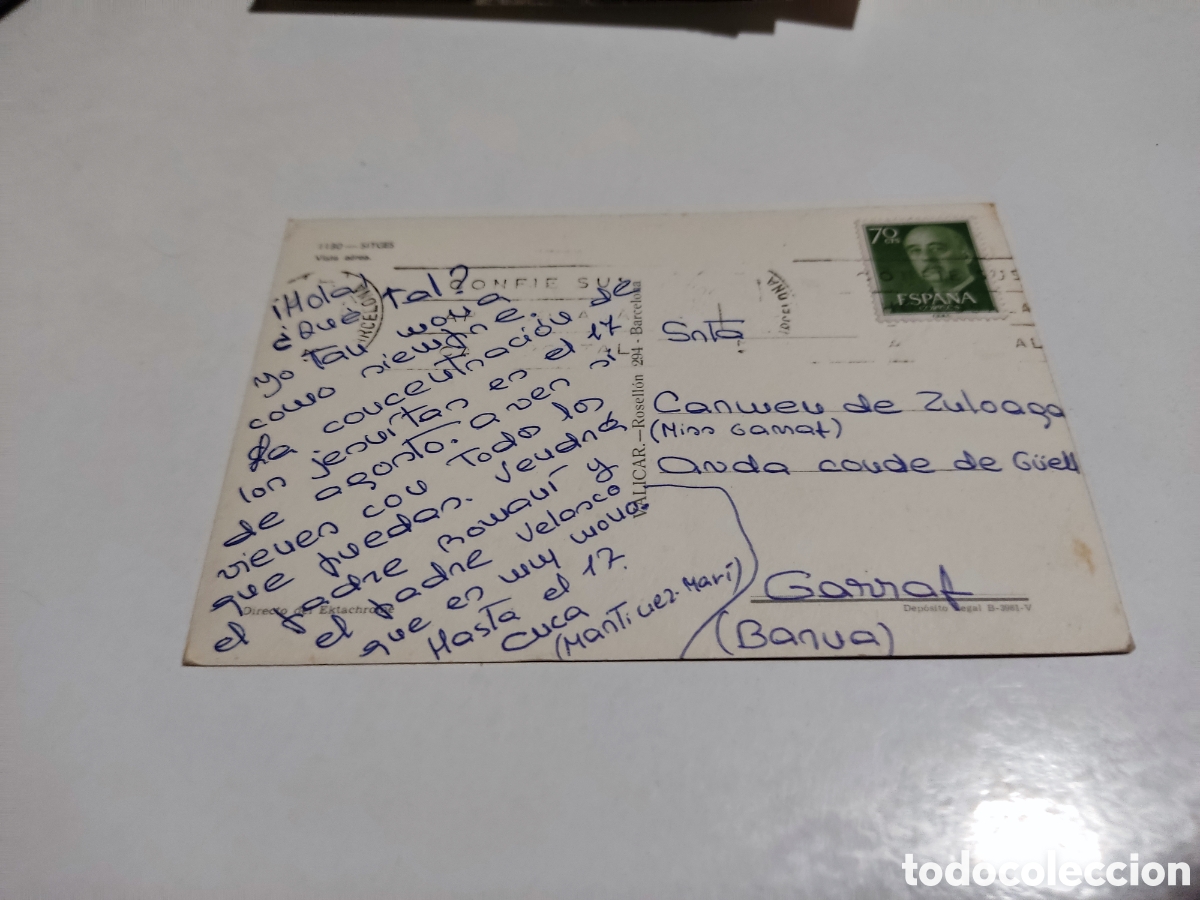 1130 — SITGES
Vista aérea.
¡Hola!
¿Qué tal?
Yo tan mona
como siempre.
La concentración de
los jesuitas es el 17
de agosto. a ver si
vienes con todos los
que puedas. Vendrá
el padre Romañí y
el padre Velasco
que es muy mona.
Hasta el 17.
Cuca
(Mantinez-Marí)
CONFIE SU
AL
BARCELONA
VALICAR.—Rosellón 294 - Barcelona
70 cts
ESPAÑA
CORREOS
AL
Snta
Carmen de Zuloaga
(Miss Garraf)
Avda conde de Güell
Garraf
(Barna)
Directo de Ektachrome
Depósito Legal B-3981-V
todocoleccion